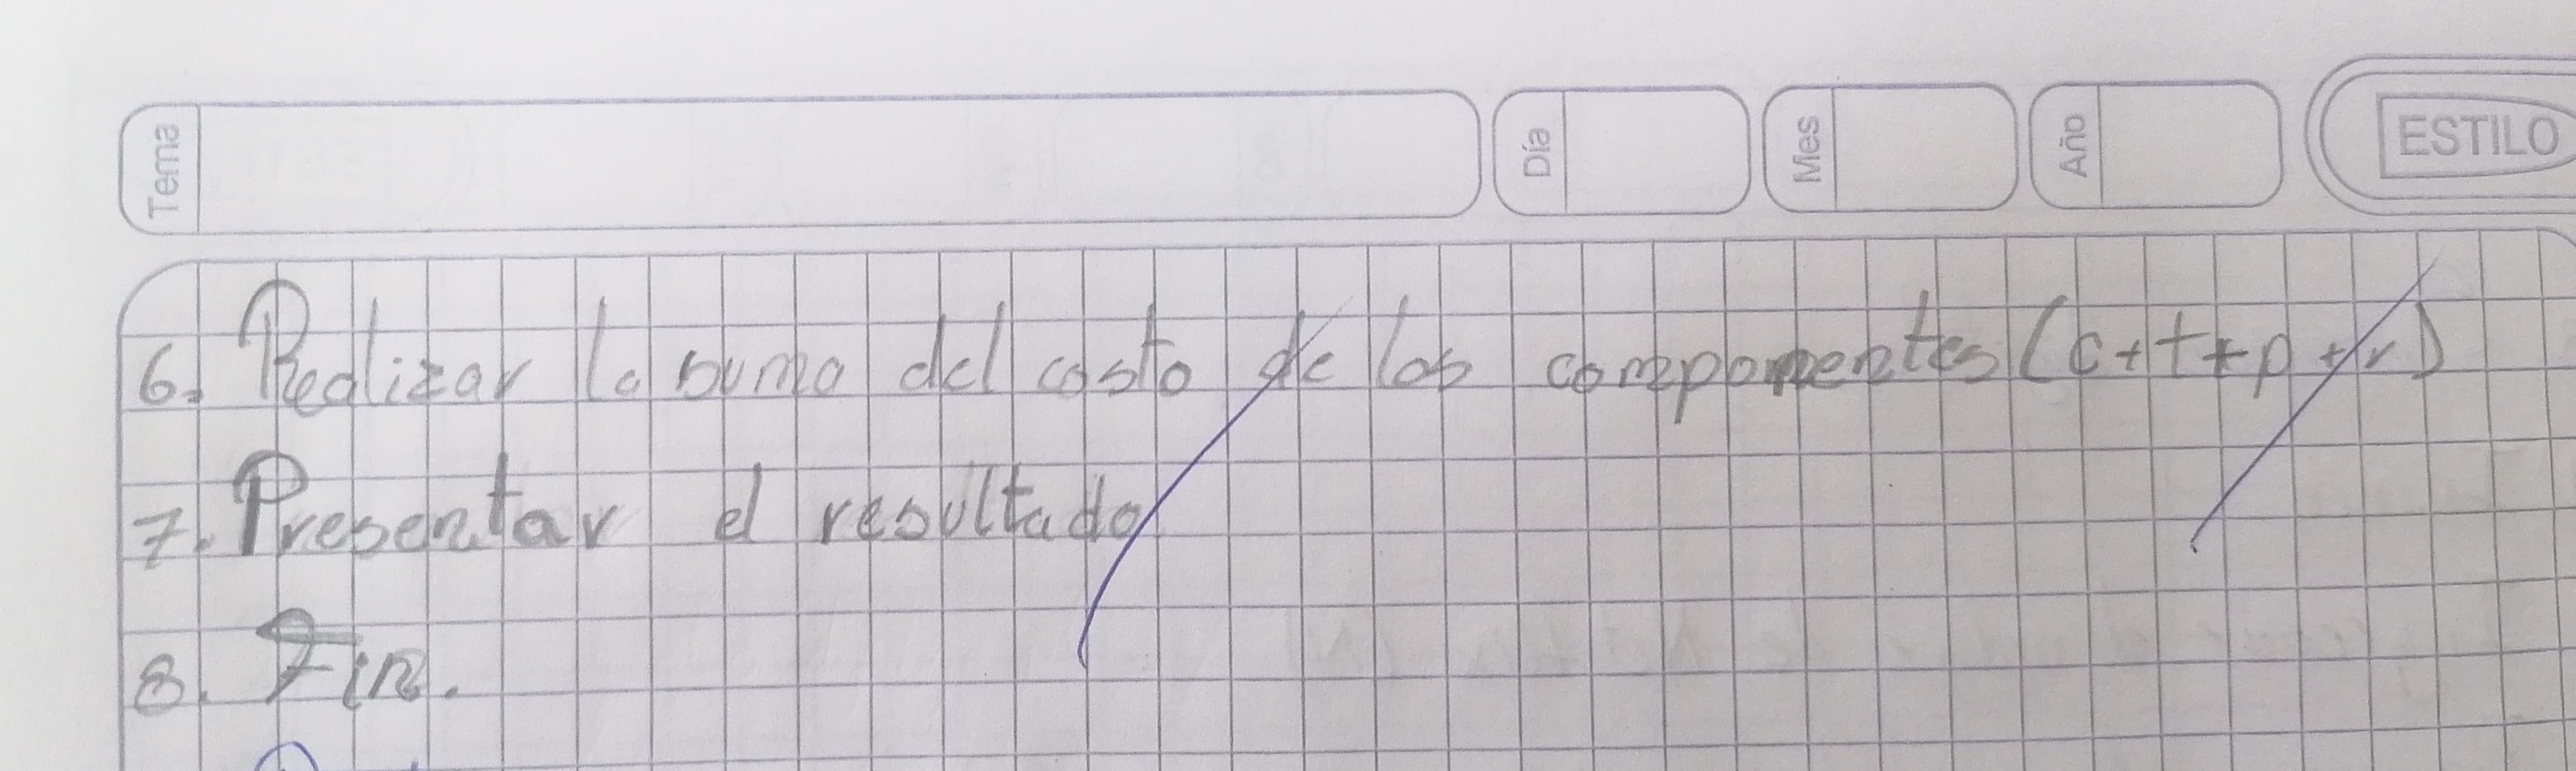 Tema
Día
Mes
Año
ESTILO
6. Realizar la suma del costo de los componentes (c+t+p+r)
7. Presentar el resultado
8. Fin.